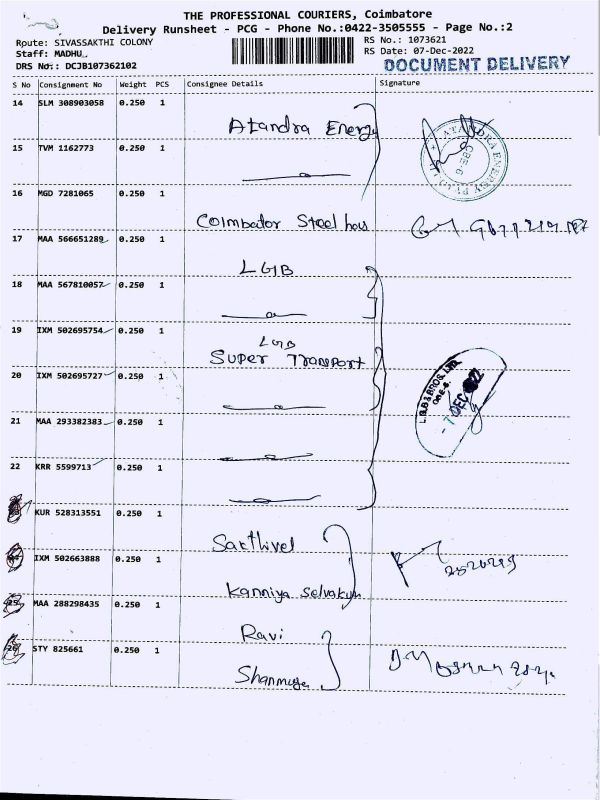 THE PROFESSIONAL COURIERS, Coimbatore
Delivery Runsheet - PCG - Phone No.:0422-3505555 - Page No.:2
Route: SIVASSAKTHI COLONY
Staff: MADHU
DRS No: DCJB107362102
RS No.: 1073621
RS Date: 07-Dec-2022
DOCUMENT DELIVERY
S No Consignment No Weight PCS Consignee Details Signature
14 SLM 308903058 0.250 1 Atandra Energy
ATANDRA ENERGY CBE-6
15 TVM 1162773 0.250 1
16 MGD 7281065 0.250 1 Coimbator Steel hous
17 MAA 566651289 0.250 1 LGB
18 MAA 567810057 0.250 1
19 IXM 502695754 0.250 1 LGB
Super Transport
20 IXM 502695727 0.250 1
L.G.B & BROS. LTD. CBE-6.
- 7 DEC 2022
21 MAA 293382383 0.250 1
22 KRR 5599713 0.250 1
KUR 528313551 0.250 1 Sakthivel
IXM 502663888 0.250 1 Kanniya Selvakum
25 MAA 288298435 0.250 1 Ravi
26 STY 825661 0.250 1 Shanmuga